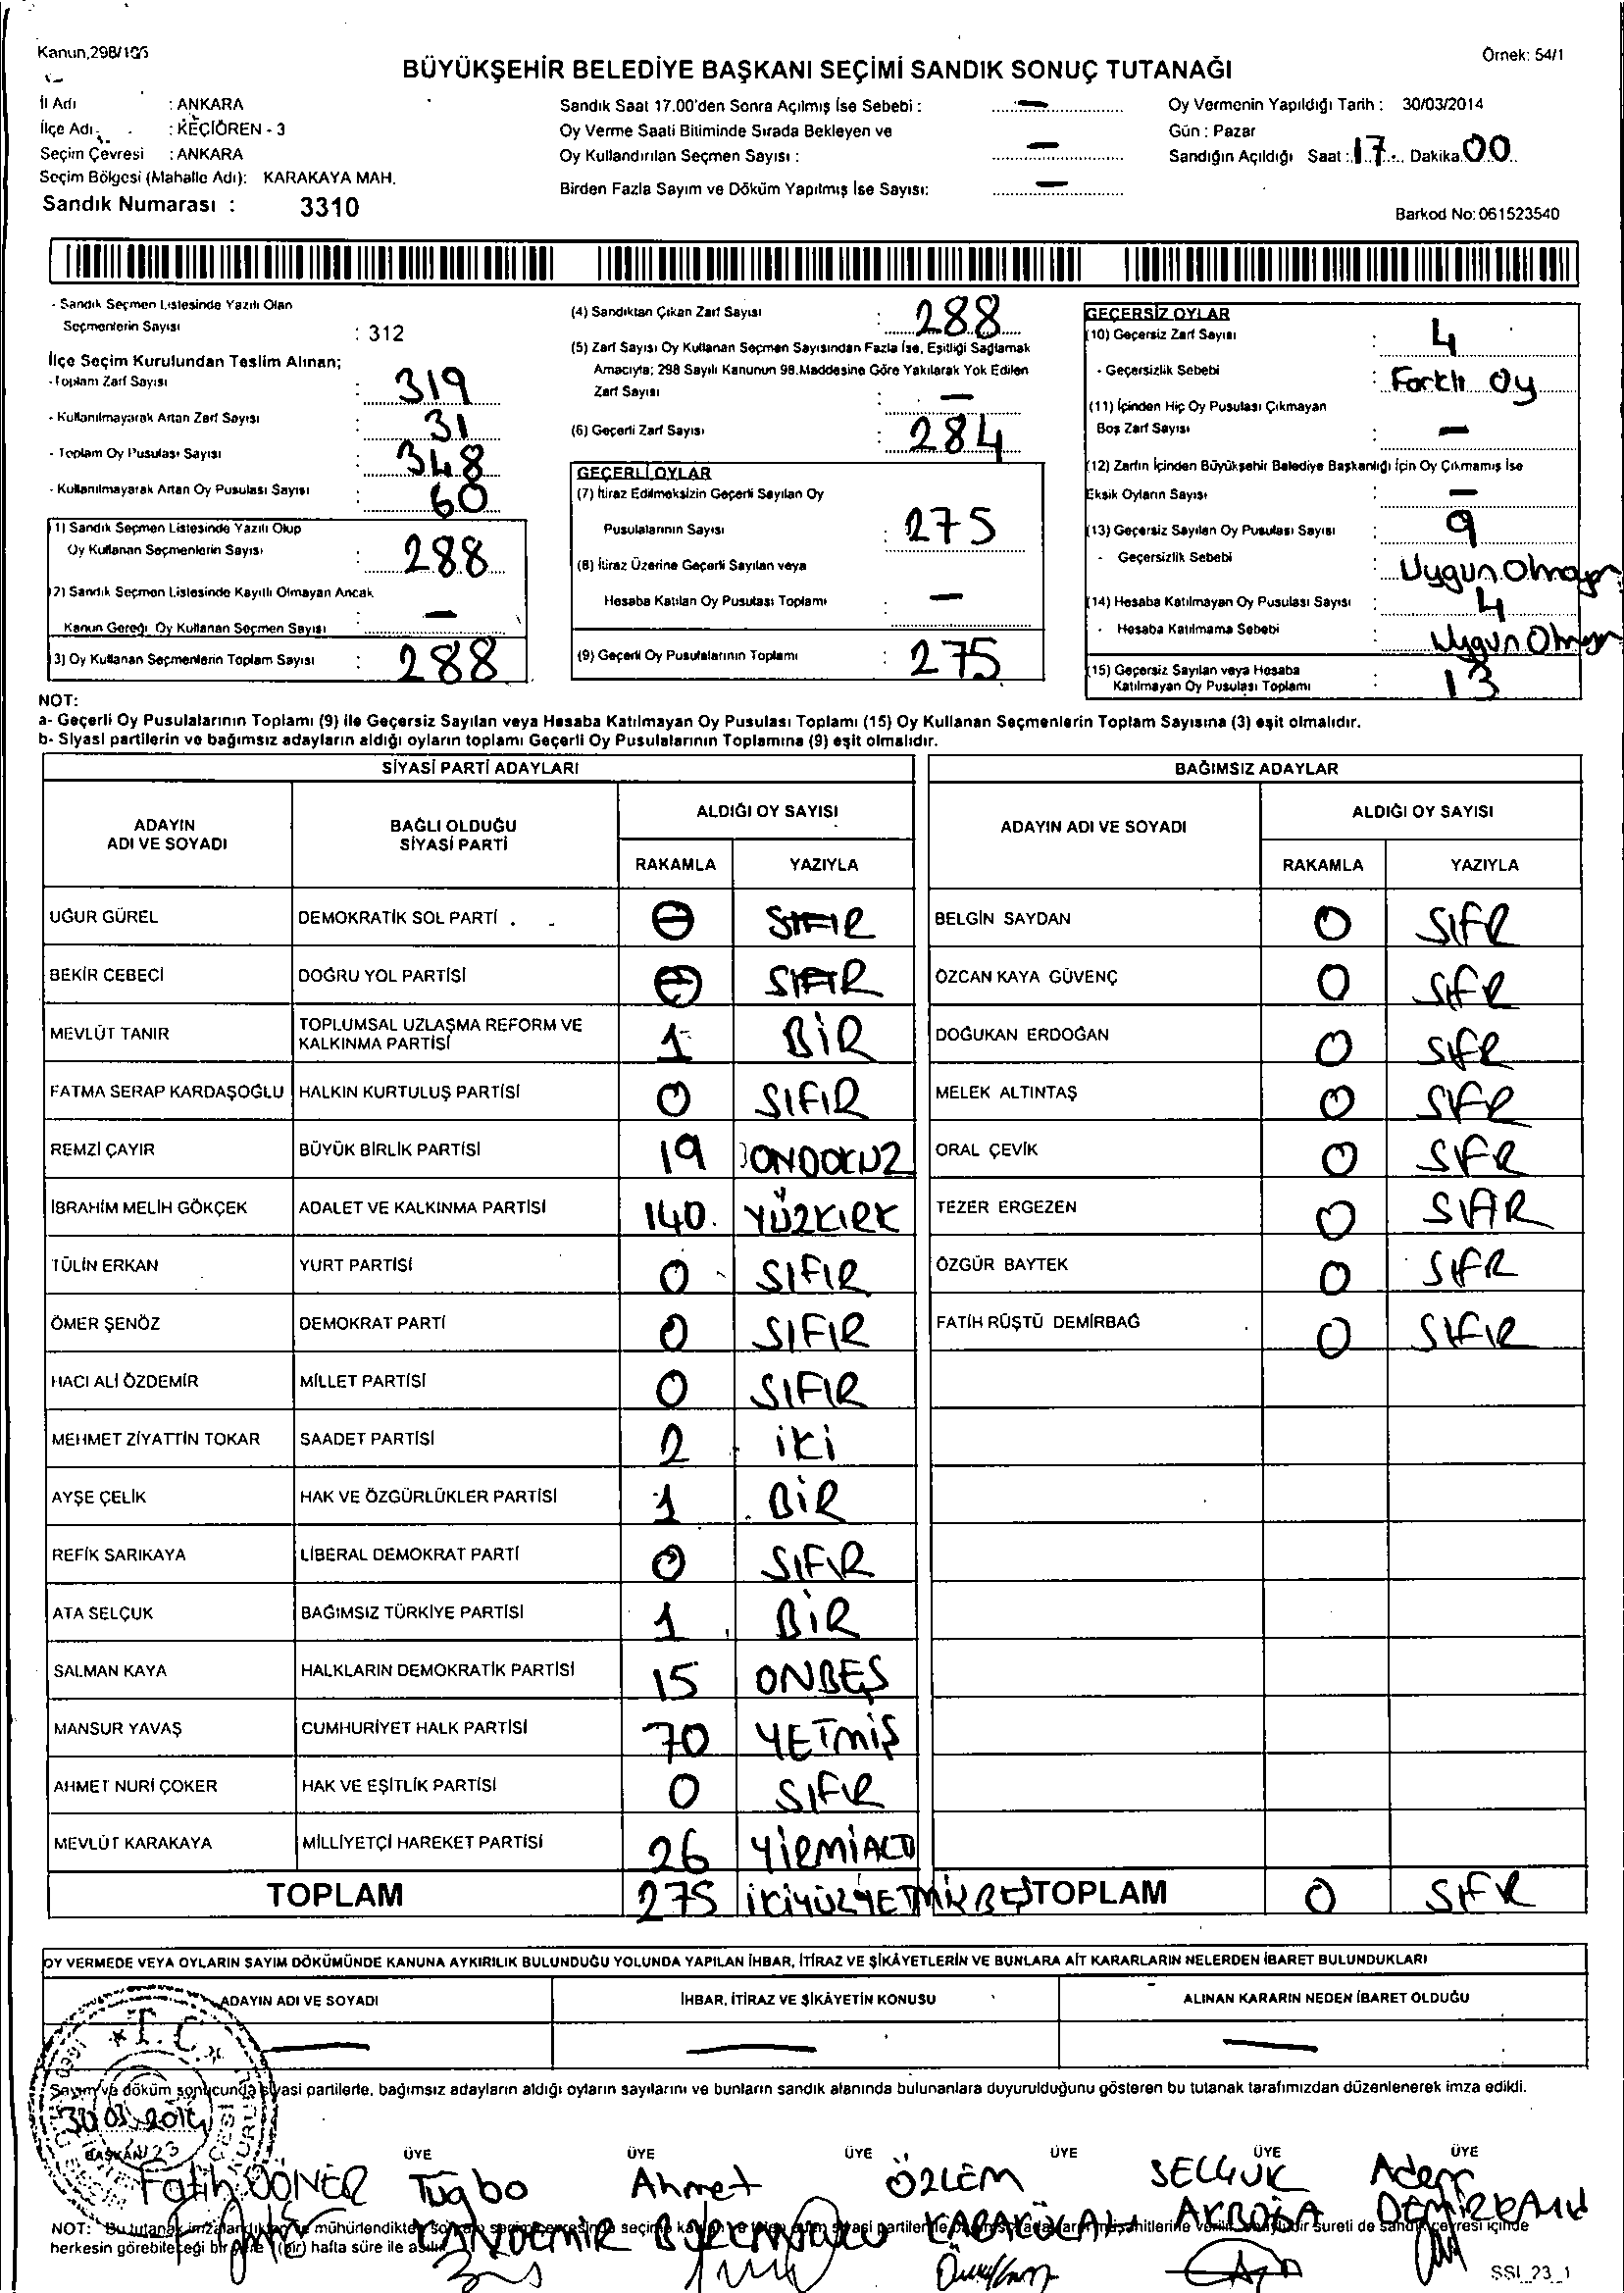 Kanun,298/105
Örnek: 54/1
BÜYÜKŞEHİR BELEDİYE BAŞKANI SEÇİMİ SANDIK SONUÇ TUTANAĞI
İl Adı : ANKARA
İlçe Adı : KEÇİÖREN - 3
Seçim Çevresi : ANKARA
Seçim Bölgesi (Mahalle Adı): KARAKAYA MAH.
Sandık Numarası : 3310
Sandık Saat 17.00'den Sonra Açılmış İse Sebebi : —
Oy Verme Saati Bitiminde Sırada Bekleyen ve
Oy Kullandırılan Seçmen Sayısı : —
Birden Fazla Sayım ve Döküm Yapılmış İse Sayısı: —
Oy Vermenin Yapıldığı Tarih : 30/03/2014
Gün : Pazar
Sandığın Açıldığı Saat : 17 Dakika 00
Barkod No: 061523540
- Sandık Seçmen Listesinde Yazılı Olan
Seçmenlerin Sayısı : 312
İlçe Seçim Kurulundan Teslim Alınan;
- Toplam Zarf Sayısı : 319
- Kullanılmayarak Artan Zarf Sayısı : 31
- Toplam Oy Pusulası Sayısı : 348
- Kullanılmayarak Artan Oy Pusulası Sayısı : 60
(1) Sandık Seçmen Listesinde Yazılı Olup
Oy Kullanan Seçmenlerin Sayısı : 288
(2) Sandık Seçmen Listesinde Kayıtlı Olmayan Ancak
Kanun Gereği Oy Kullanan Seçmen Sayısı : —
(3) Oy Kullanan Seçmenlerin Toplam Sayısı : 288
(4) Sandıktan Çıkan Zarf Sayısı : 288
(5) Zarf Sayısı Oy Kullanan Seçmen Sayısından Fazla İse, Eşitliği Sağlamak
Amacıyla; 298 Sayılı Kanunun 98.Maddesine Göre Yakılarak Yok Edilen
Zarf Sayısı : —
(6) Geçerli Zarf Sayısı : 284
GEÇERLİ OYLAR
(7) İtiraz Edilmeksizin Geçerli Sayılan Oy
Pusulalarının Sayısı : 275
(8) İtiraz Üzerine Geçerli Sayılan veya
Hesaba Katılan Oy Pusulası Toplamı : —
(9) Geçerli Oy Pusulalarının Toplamı : 275
GEÇERSİZ OYLAR
(10) Geçersiz Zarf Sayısı : 4
- Geçersizlik Sebebi : Farklı Oy
(11) İçinden Hiç Oy Pusulası Çıkmayan
Boş Zarf Sayısı : —
(12) Zarfın İçinden Büyükşehir Belediye Başkanlığı İçin Oy Çıkmamış İse
Eksik Oyların Sayısı : —
(13) Geçersiz Sayılan Oy Pusulası Sayısı : 9
- Geçersizlik Sebebi : Uygun Olmayan
(14) Hesaba Katılmayan Oy Pusulası Sayısı : 4
- Hesaba Katılmama Sebebi : Uygun Olmayan
(15) Geçersiz Sayılan veya Hesaba
Katılmayan Oy Pusulası Toplamı : 13
NOT:
a- Geçerli Oy Pusulalarının Toplamı (9) ile Geçersiz Sayılan veya Hesaba Katılmayan Oy Pusulası Toplamı (15) Oy Kullanan Seçmenlerin Toplam Sayısına (3) eşit olmalıdır.
b- Siyasi partilerin ve bağımsız adayların aldığı oyların toplamı Geçerli Oy Pusulalarının Toplamına (9) eşit olmalıdır.
SİYASİ PARTİ ADAYLARI
ADAYIN ADI VE SOYADI BAĞLI OLDUĞU SİYASİ PARTİ ALDIĞI OY SAYISI
RAKAMLA YAZIYLA
UĞUR GÜREL DEMOKRATİK SOL PARTİ 0 SIFIR
BEKİR CEBECİ DOĞRU YOL PARTİSİ 0 SIFIR
MEVLÜT TANIR TOPLUMSAL UZLAŞMA REFORM VE KALKINMA PARTİSİ 1 BİR
FATMA SERAP KARDAŞOĞLU HALKIN KURTULUŞ PARTİSİ 0 SIFIR
REMZİ ÇAYIR BÜYÜK BİRLİK PARTİSİ 19 ONDOKUZ
İBRAHİM MELİH GÖKÇEK ADALET VE KALKINMA PARTİSİ 140 YÜZKIRK
TÜLİN ERKAN YURT PARTİSİ 0 SIFIR
ÖMER ŞENÖZ DEMOKRAT PARTİ 0 SIFIR
HACI ALİ ÖZDEMİR MİLLET PARTİSİ 0 SIFIR
MEHMET ZİYATTİN TOKAR SAADET PARTİSİ 2 İKİ
AYŞE ÇELİK HAK VE ÖZGÜRLÜKLER PARTİSİ 1 BİR
REFİK SARIKAYA LİBERAL DEMOKRAT PARTİ 0 SIFIR
ATA SELÇUK BAĞIMSIZ TÜRKİYE PARTİSİ 1 BİR
SALMAN KAYA HALKLARIN DEMOKRATİK PARTİSİ 15 ONBEŞ
MANSUR YAVAŞ CUMHURİYET HALK PARTİSİ 70 YETMİŞ
AHMET NURİ ÇOKER HAK VE EŞİTLİK PARTİSİ 0 SIFIR
MEVLÜT KARAKAYA MİLLİYETÇİ HAREKET PARTİSİ 26 YİRMİALTI
TOPLAM 275 İKİYÜZYETMİŞBEŞ
BAĞIMSIZ ADAYLAR
ADAYIN ADI VE SOYADI ALDIĞI OY SAYISI
RAKAMLA YAZIYLA
BELGİN SAYDAN 0 SIFR
ÖZCAN KAYA GÜVENÇ 0 SIFR
DOĞUKAN ERDOĞAN 0 SIFR
MELEK ALTINTAŞ 0 SIFR
ORAL ÇEVİK 0 SIFR
TEZER ERGEZEN 0 SIFIR
ÖZGÜR BAYTEK 0 SIFR
FATİH RÜŞTÜ DEMİRBAĞ 0 SIFIR
TOPLAM 0 SIFR
OY VERMEDE VEYA OYLARIN SAYIM DÖKÜMÜNDE KANUNA AYKIRILIK BULUNDUĞU YOLUNDA YAPILAN İHBAR, İTİRAZ VE ŞİKÂYETLERİN VE BUNLARA AİT KARARLARIN NELERDEN İBARET BULUNDUKLARI
ADAYIN ADI VE SOYADI İHBAR, İTİRAZ VE ŞİKÂYETİN KONUSU ALINAN KARARIN NEDEN İBARET OLDUĞU
— — —
Sayım ve döküm sonucunda siyasi partilerle, bağımsız adayların aldığı oyların sayılarını ve bunların sandık alanında bulunanlara duyurulduğunu gösteren bu tutanak tarafımızdan düzenlenerek imza edildi.
T.C.
30.03.2014
BAŞKAN ÜYE ÜYE ÜYE ÜYE ÜYE ÜYE
Fatih DÖNER Tuğba Ahmet ÖZLEM SELÇUK Adem
KANDEMİR KARAKÜLAH AKBOĞA
NOT: Bu tutanak imzalandıktan ve mühürlendikten sonra
herkesin görebileceği bir yere 1 (bir) hafta süre ile asılır.
SSI_23_1